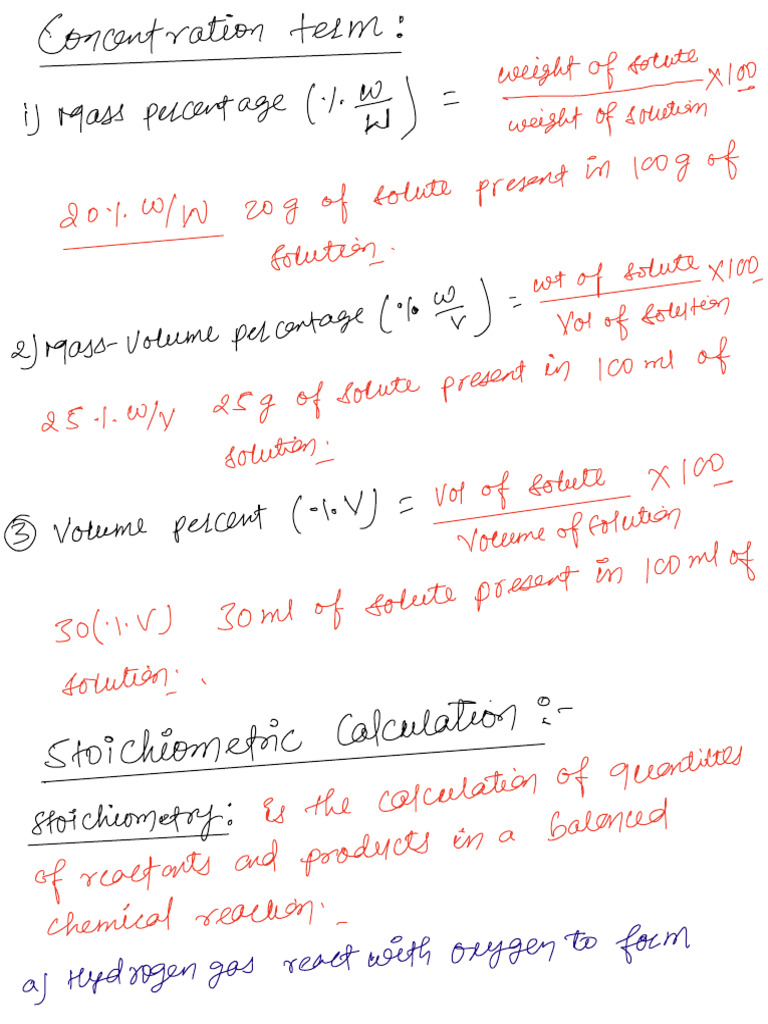 Concentration term:
i) Mass percentage (% w/W) = weight of solute / weight of solution × 100
20% w/W 20g of solute present in 100g of
solution.
2) Mass-Volume percentage (% w/v) = wt of solute / Vol of solution × 100
25% w/v 25g of solute present in 100ml of
solution.
③ Volume percent (% V) = Vol of solute / Volume of solution × 100
30(% V) 30ml of solute present in 100ml of
solution.
Stoichiometric Calculation :-
Stoichiometry: is the calculation of quantities
of reactants and products in a balanced
chemical reaction.
a) Hydrogen gas react with oxygen to form